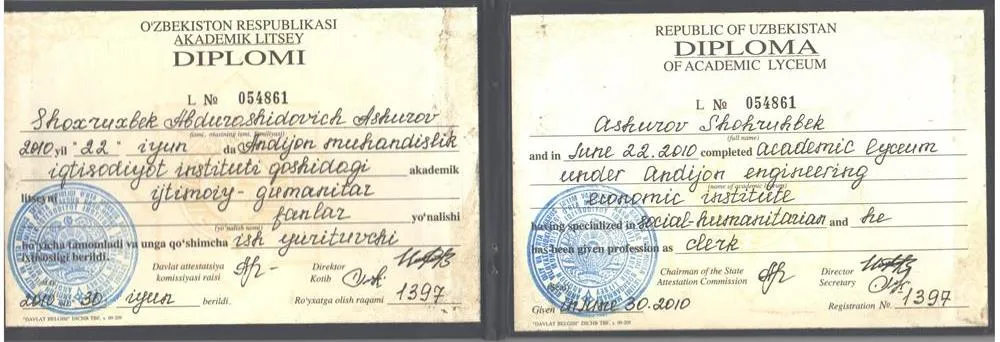 O'ZBEKISTON RESPUBLIKASI
AKADEMIK LITSEY
DIPLOMI
L № 054861
Shoxruxbek Abduroshidovich Ashurov
(ismi, otasining ismi, familiyasi)
2010 yil "22" iyun da Andijon muhandislik
iqtisodiyot instituti qoshidagi akademik
litseyni ijtimoiy-gumanitar
fanlar yo'nalishi
(yo'nalish nomi)
bo'yicha tamomladi va unga qo'shimcha ish yurituvchi
ixtisosligi berildi.
Davlat attestatsiya
komissiyasi raisi
Direktor
Kotib
2010 yil 30 iyun berildi.
Ro'yxatga olish raqami 1397
"DAVLAT BELGISI" DICHB TBF.
REPUBLIC OF UZBEKISTAN
DIPLOMA
OF ACADEMIC LYCEUM
L № 054861
Ashurov Shohruhbek
(full name)
and in June 22.2010 completed academic lyceum
under Andijon engineering
(name of academic lyceum)
economic institute
having specialized in social-humanitarian and he
has been given profession as clerk
Chairman of the State
Attestation Commission
Director
Secretary
(Seal)
Given in June 30.2010
Registration No. 1397
"DAVLAT BELGISI" DICHB TBF.